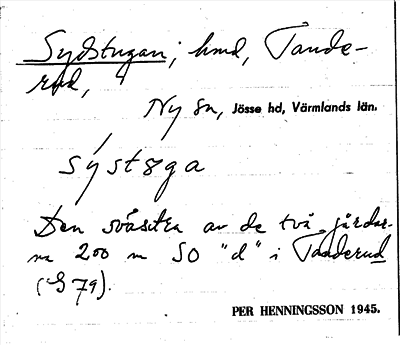 Sydstugan; hmd, Tande-
rud,
Ny sn, Jösse hd, Värmlands län.
sýstøga
Den svåstra av de två gårdar-
na 200 m SO "d" i Tanderud
(G 79).
PER HENNINGSSON 1945.